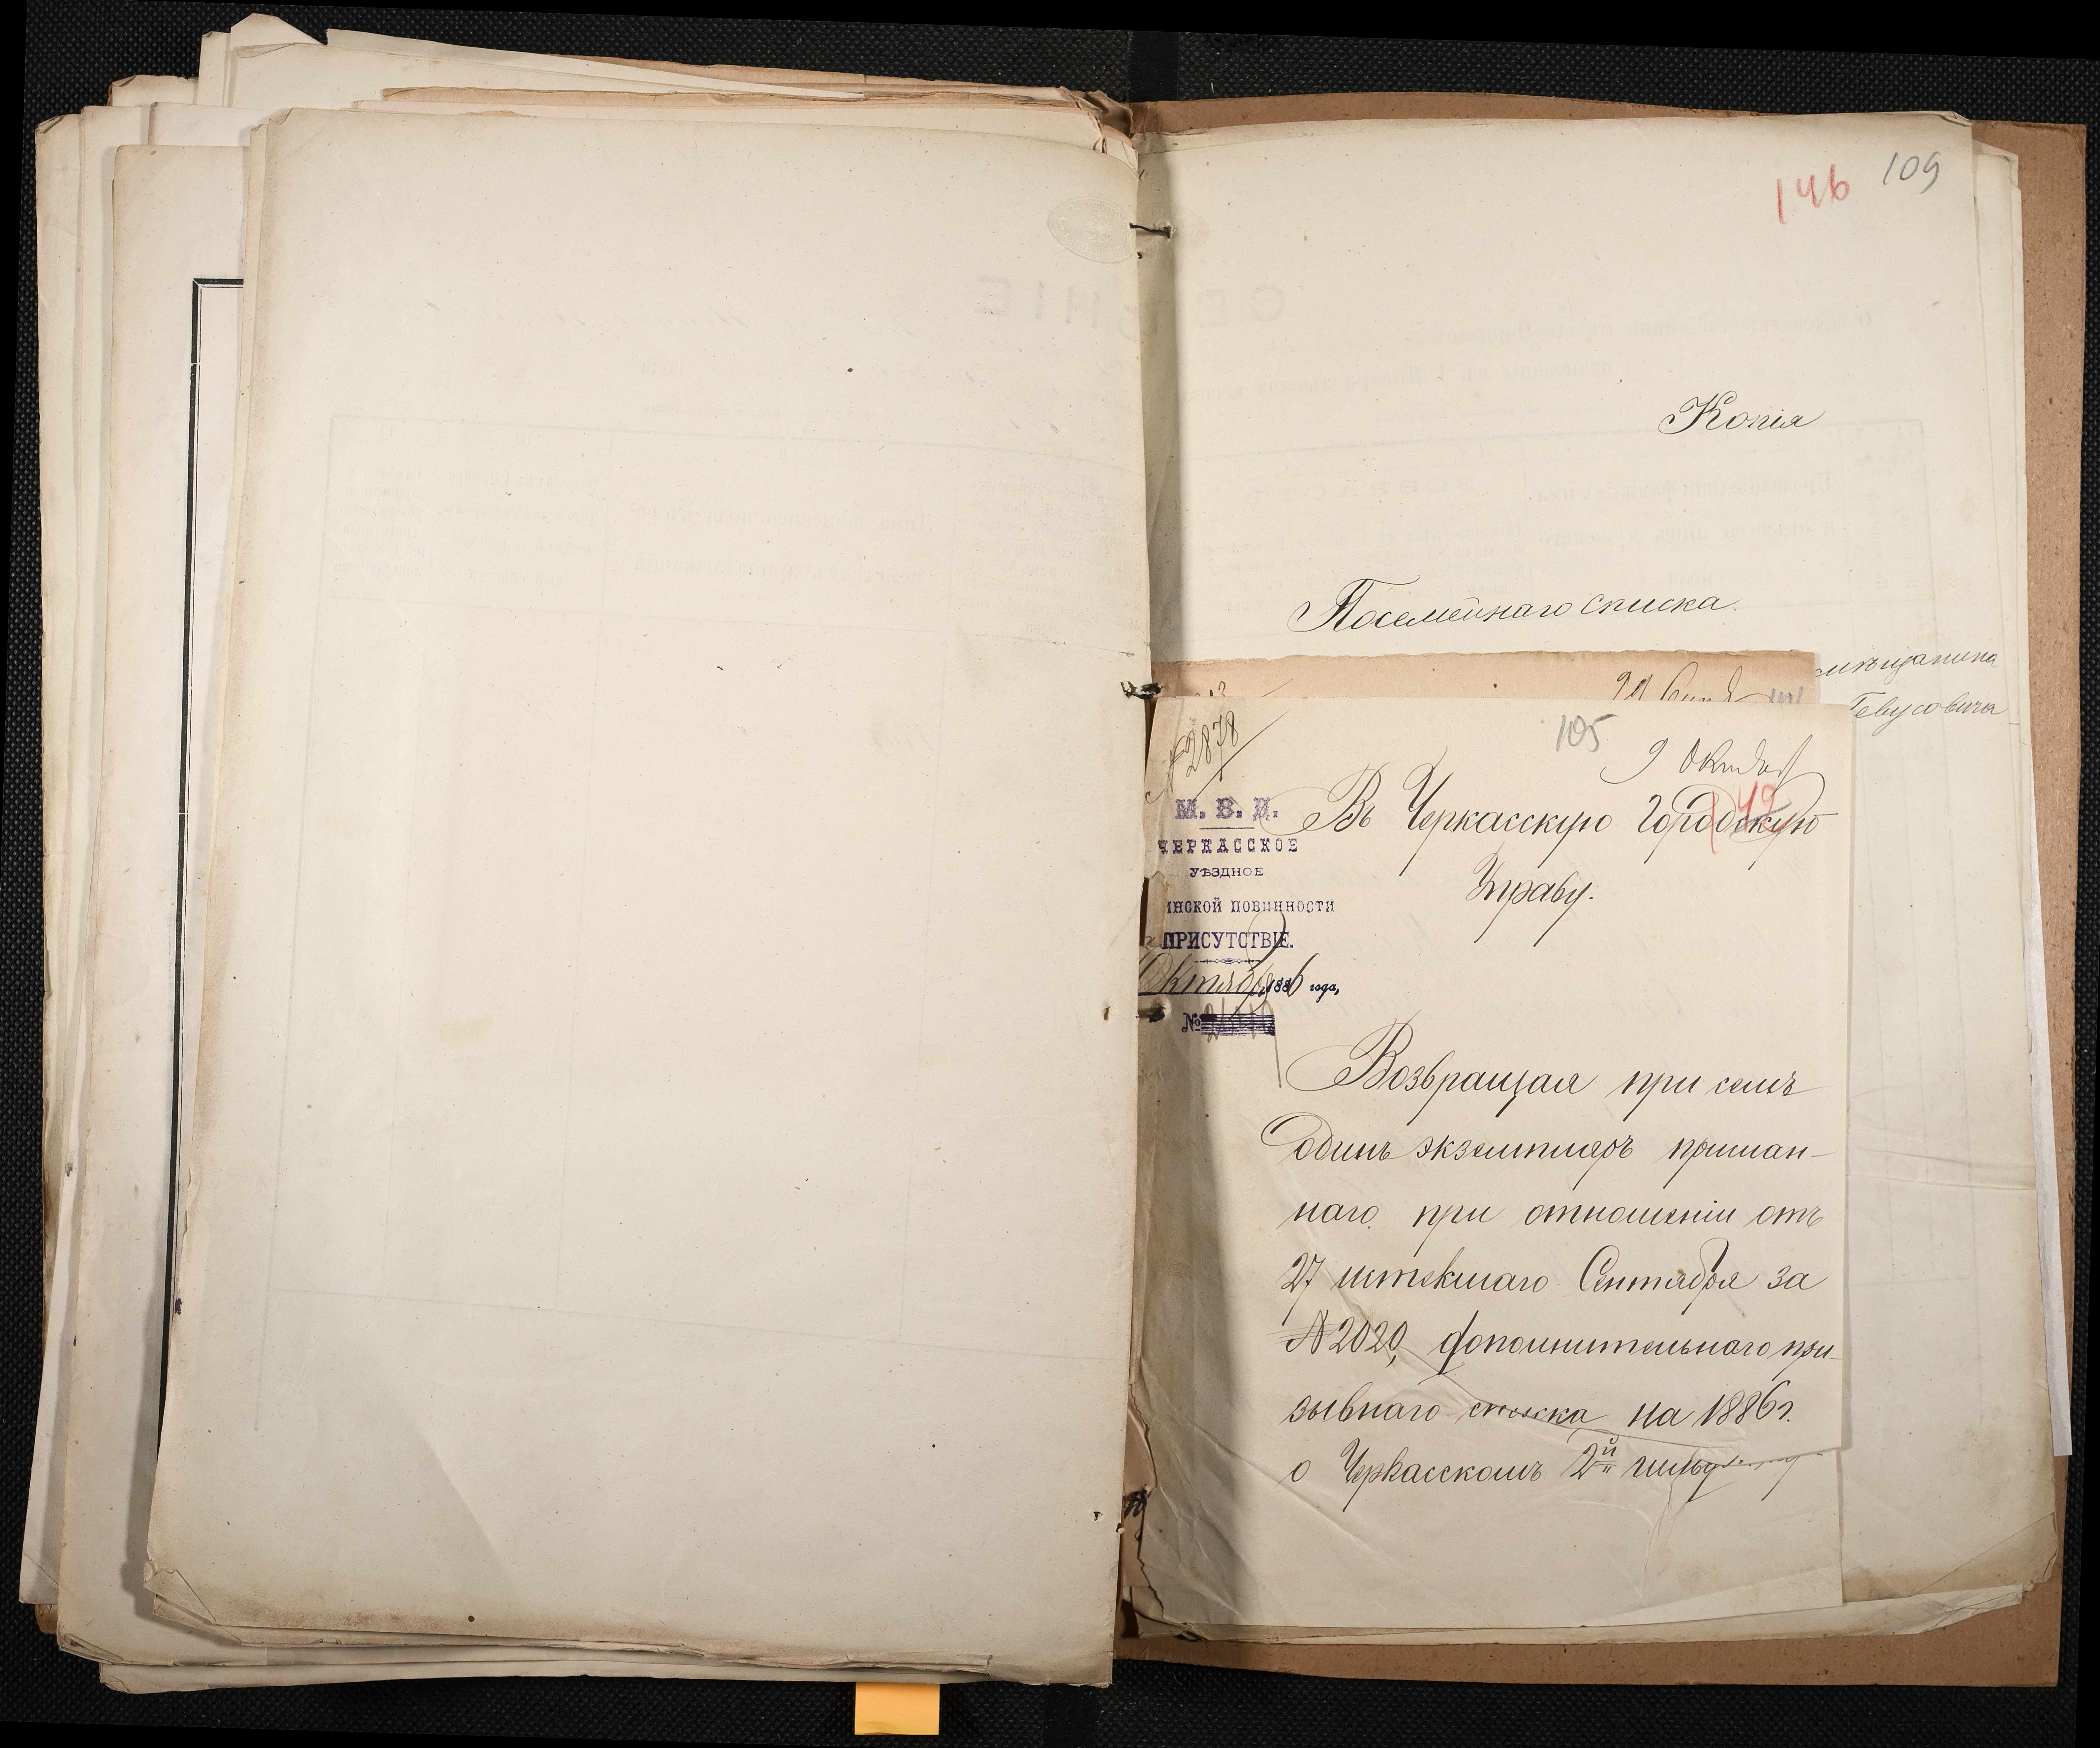 146 109
Копія
Посемейнаго списка.
мѣщанина
105
9 Октября
№ 2878
М. В. Д.
ЧЕРКАССКОЕ
УѢЗДНОЕ
ИНСКОЙ ПОВИННОСТИ
ПРИСУТСТВІЕ.
Октября 1886 года,
№
Въ Черкасскую Городскую
Управу.
Возвращая при семъ
одинъ экземпляръ прислан-
наго при отношеніи отъ
27 истекшаго Сентября за
№ 2020, дополнительнаго при-
зывнаго списка на 1886 г.
о Черкасскомъ 2й